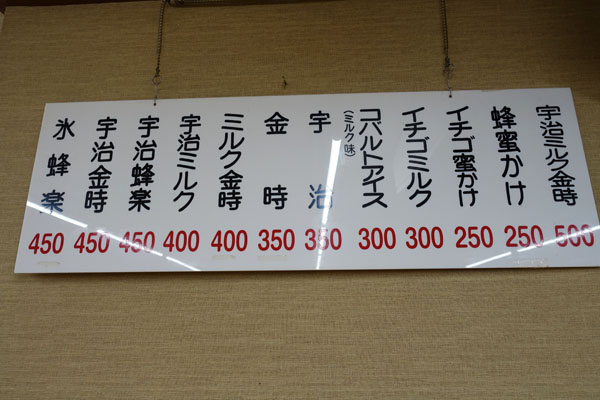 宇治ミルク金時
500
蜂蜜かけ
250
イチゴ蜜かけ
250
イチゴミルク
300
コバルトアイス
(ミルク味)
300
宇治
350
金時
350
ミルク金時
400
宇治ミルク
400
宇治蜂楽
450
宇治金時
450
氷蜂楽
450